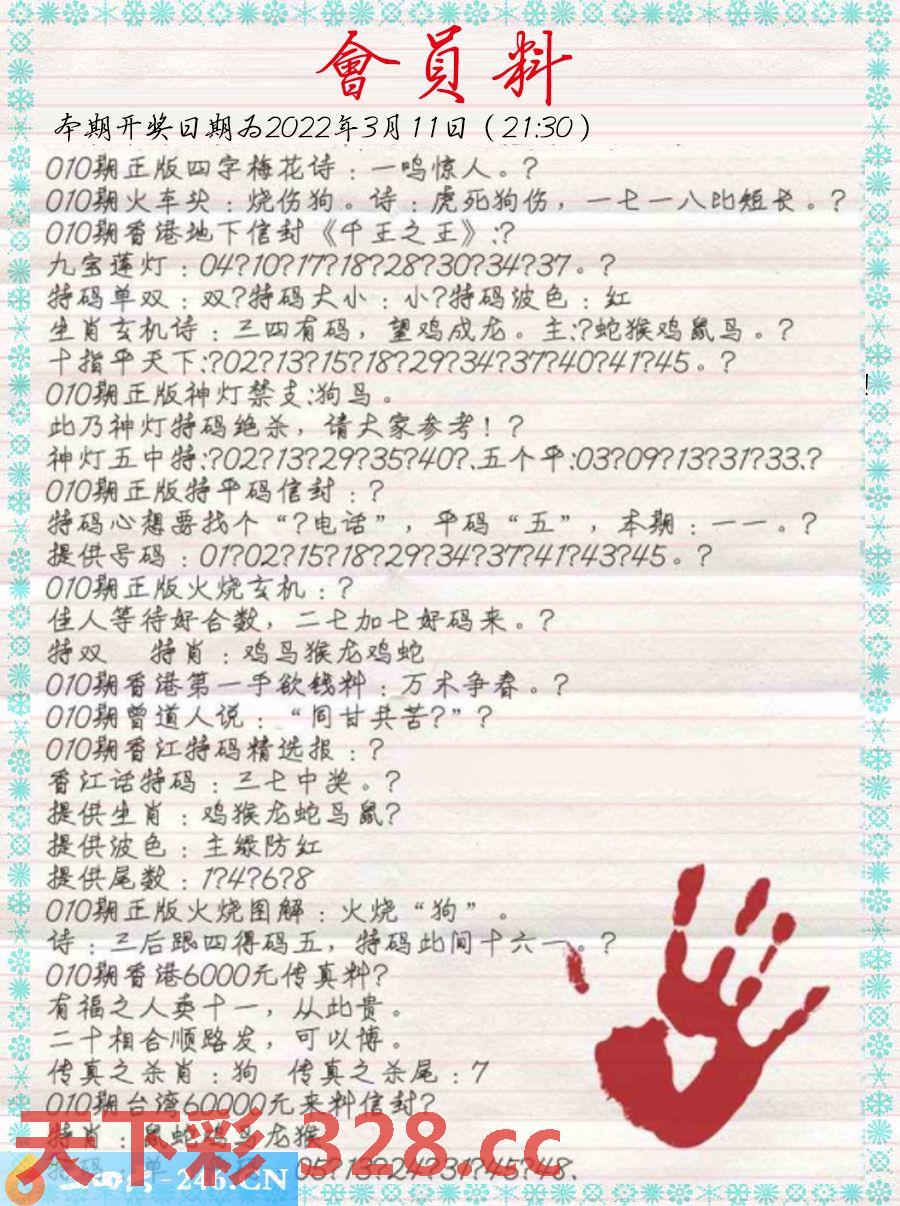 會員料
本期开奖日期为2022年3月11日（21:30）
010期正版四字梅花诗：一鸣惊人。?
010期火车块：烧伤狗。诗：虎死狗伤，一七一八比短长。?
010期香港地下信封《千王之王》:?
九宝莲灯：04?10?17?18?28?30?34?37。?
特码单双：双?特码大小：小?特码波色：红
生肖玄机诗：三四有码，望鸡成龙。主:?蛇猴鸡鼠马。?
十指平天下:?02?13?15?18?29?34?37?40?41?45。?
!
010期正版神灯禁支:狗马。
此乃神灯特码绝杀，请大家参考！?
神灯五中特:?02?13?29?35?40?.五个平:03?09?13?31?33.?
010期正版特平码信封：?
特码心想要找个“?电话”，平码“五”，本期：一一。?
提供号码：01?02?15?18?29?34?37?41?43?45。?
010期正版火烧玄机：?
佳人等待好合数，二七加七好码来。?
特双 特肖：鸡马猴龙鸡蛇
010期香港第一手欲钱料：万木争春。?
010期曾道人说：“同甘共苦?”?
010期香江特码精选报：?
香江话特码：三七中奖。?
提供生肖：鸡猴龙蛇马鼠?
提供波色：主绿防红
提供尾数：1?4?6?8
010期正版火烧图解：火烧“狗”。
诗：三后跟四得码五，特码此间十六一。?
010期香港6000元传真料?
有福之人卖十一，从此贵。
二十相合顺路发，可以博。
传真之杀肖：狗 传真之杀尾：7
010期台湾60000元来料信封?
特肖：鼠蛇鸡马龙猴
特码：单 05?13?24?31?45?48.
天下彩 1328.cc
-246.CN